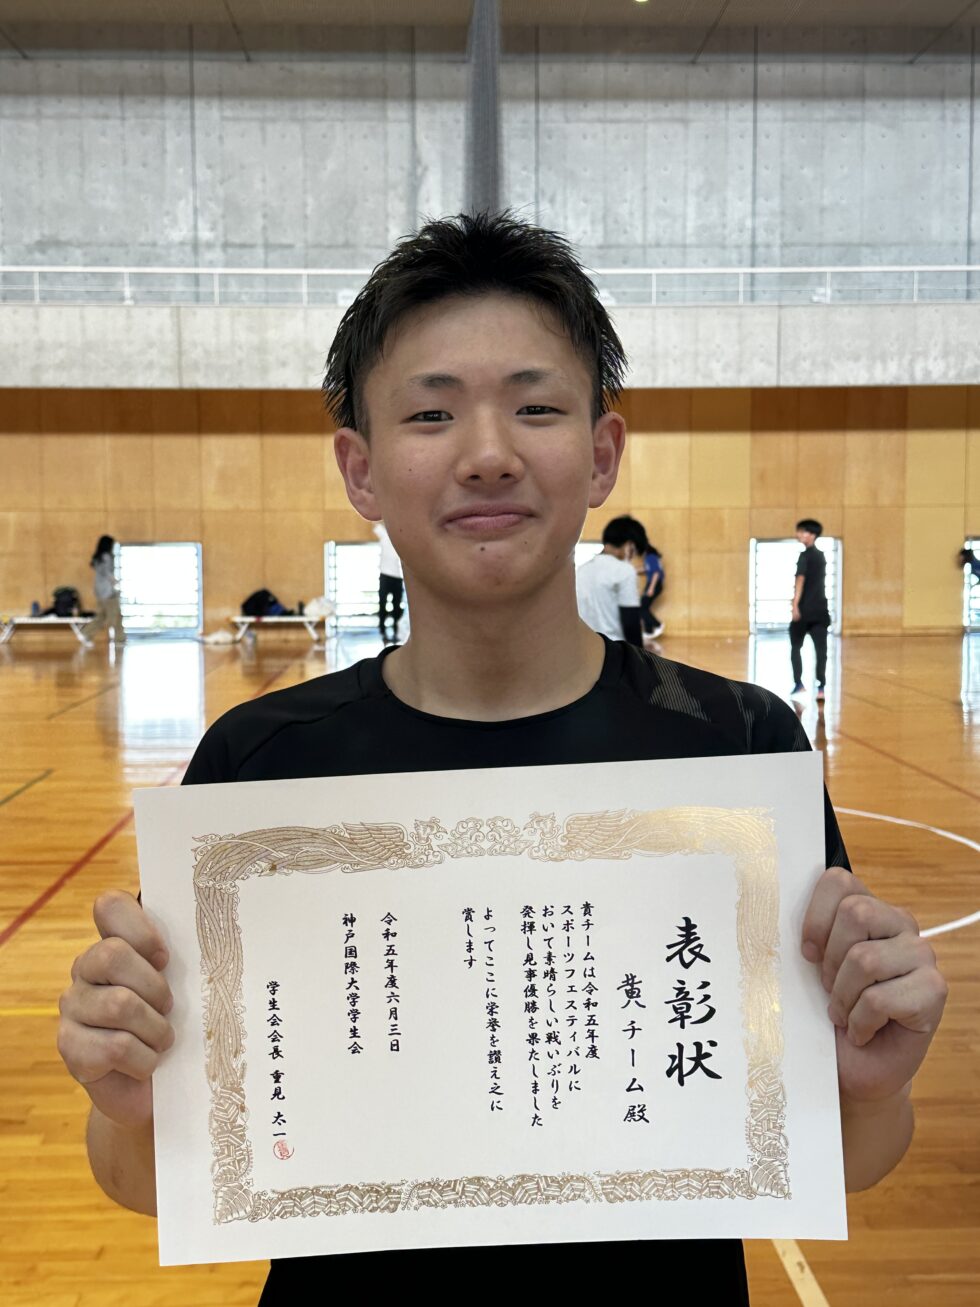 表彰状
黄チーム殿
貴チームは令和五年度
スポーツフェスティバルに
おいて素晴らしい戦いぶりを
発揮し見事優勝を果たしました
よってここに栄誉を讃え之に
賞します
令和五年度六月三日
神戸国際大学学生会
学生会会長 重見 太一